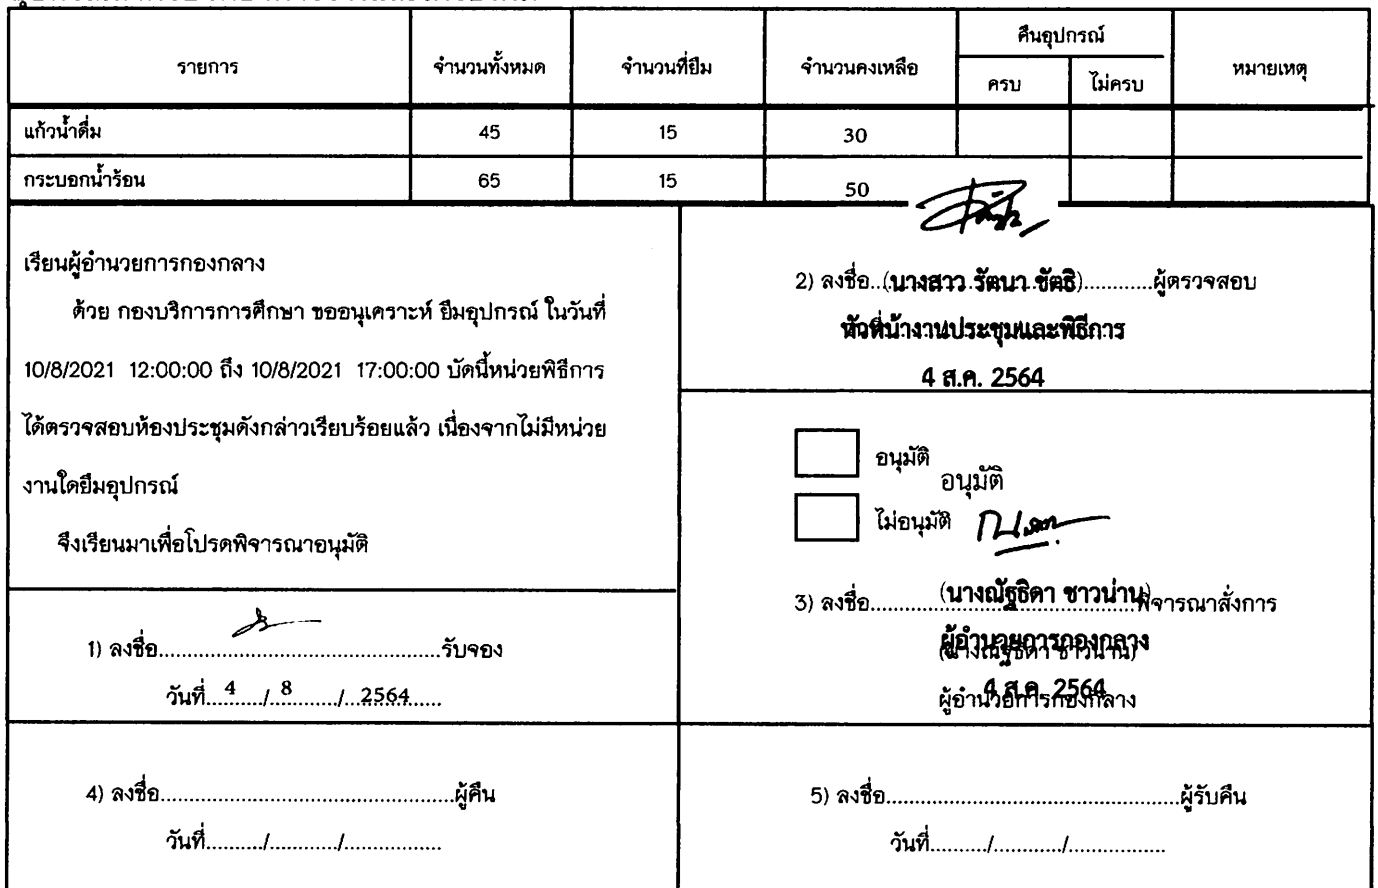 รายการ จำนวนทั้งหมด จำนวนที่ยืม จำนวนคงเหลือ คืนอุปกรณ์ หมายเหตุ
ครบ ไม่ครบ
แก้วน้ำดื่ม 45 15 30
กระบอกน้ำร้อน 65 15 50
เรียนผู้อำนวยการกองกลาง
ด้วย กองบริการการศึกษา ขออนุเคราะห์ ยืมอุปกรณ์ ในวันที่
10/8/2021 12:00:00 ถึง 10/8/2021 17:00:00 บัดนี้หน่วยพิธีการ
ได้ตรวจสอบห้องประชุมดังกล่าวเรียบร้อยแล้ว เนื่องจากไม่มีหน่วย
งานใดยืมอุปกรณ์
จึงเรียนมาเพื่อโปรดพิจารณาอนุมัติ
2) ลงชื่อ..(นางสาว รัตนา ขัตธิ)............ผู้ตรวจสอบ
หัวหน้างานประชุมและพิธีการ
4 ส.ค. 2564
อนุมัติ
อนุมัติ
ไม่อนุมัติ
(นางณัฐธิดา ชาวน่าน)
3) ลงชื่อ........................................พิจารณาสั่งการ
ผู้อำนวยการกองกลาง
(นางณัฐธิดา ชาวน่าน)
4 ส.ค. 2564
ผู้อำนวยการกองกลาง
1) ลงชื่อ...........................................รับจอง
วันที่ 4 / 8 / 2564
4) ลงชื่อ............................................ผู้คืน
วันที่........../............/................
5) ลงชื่อ............................................ผู้รับคืน
วันที่........../............/................